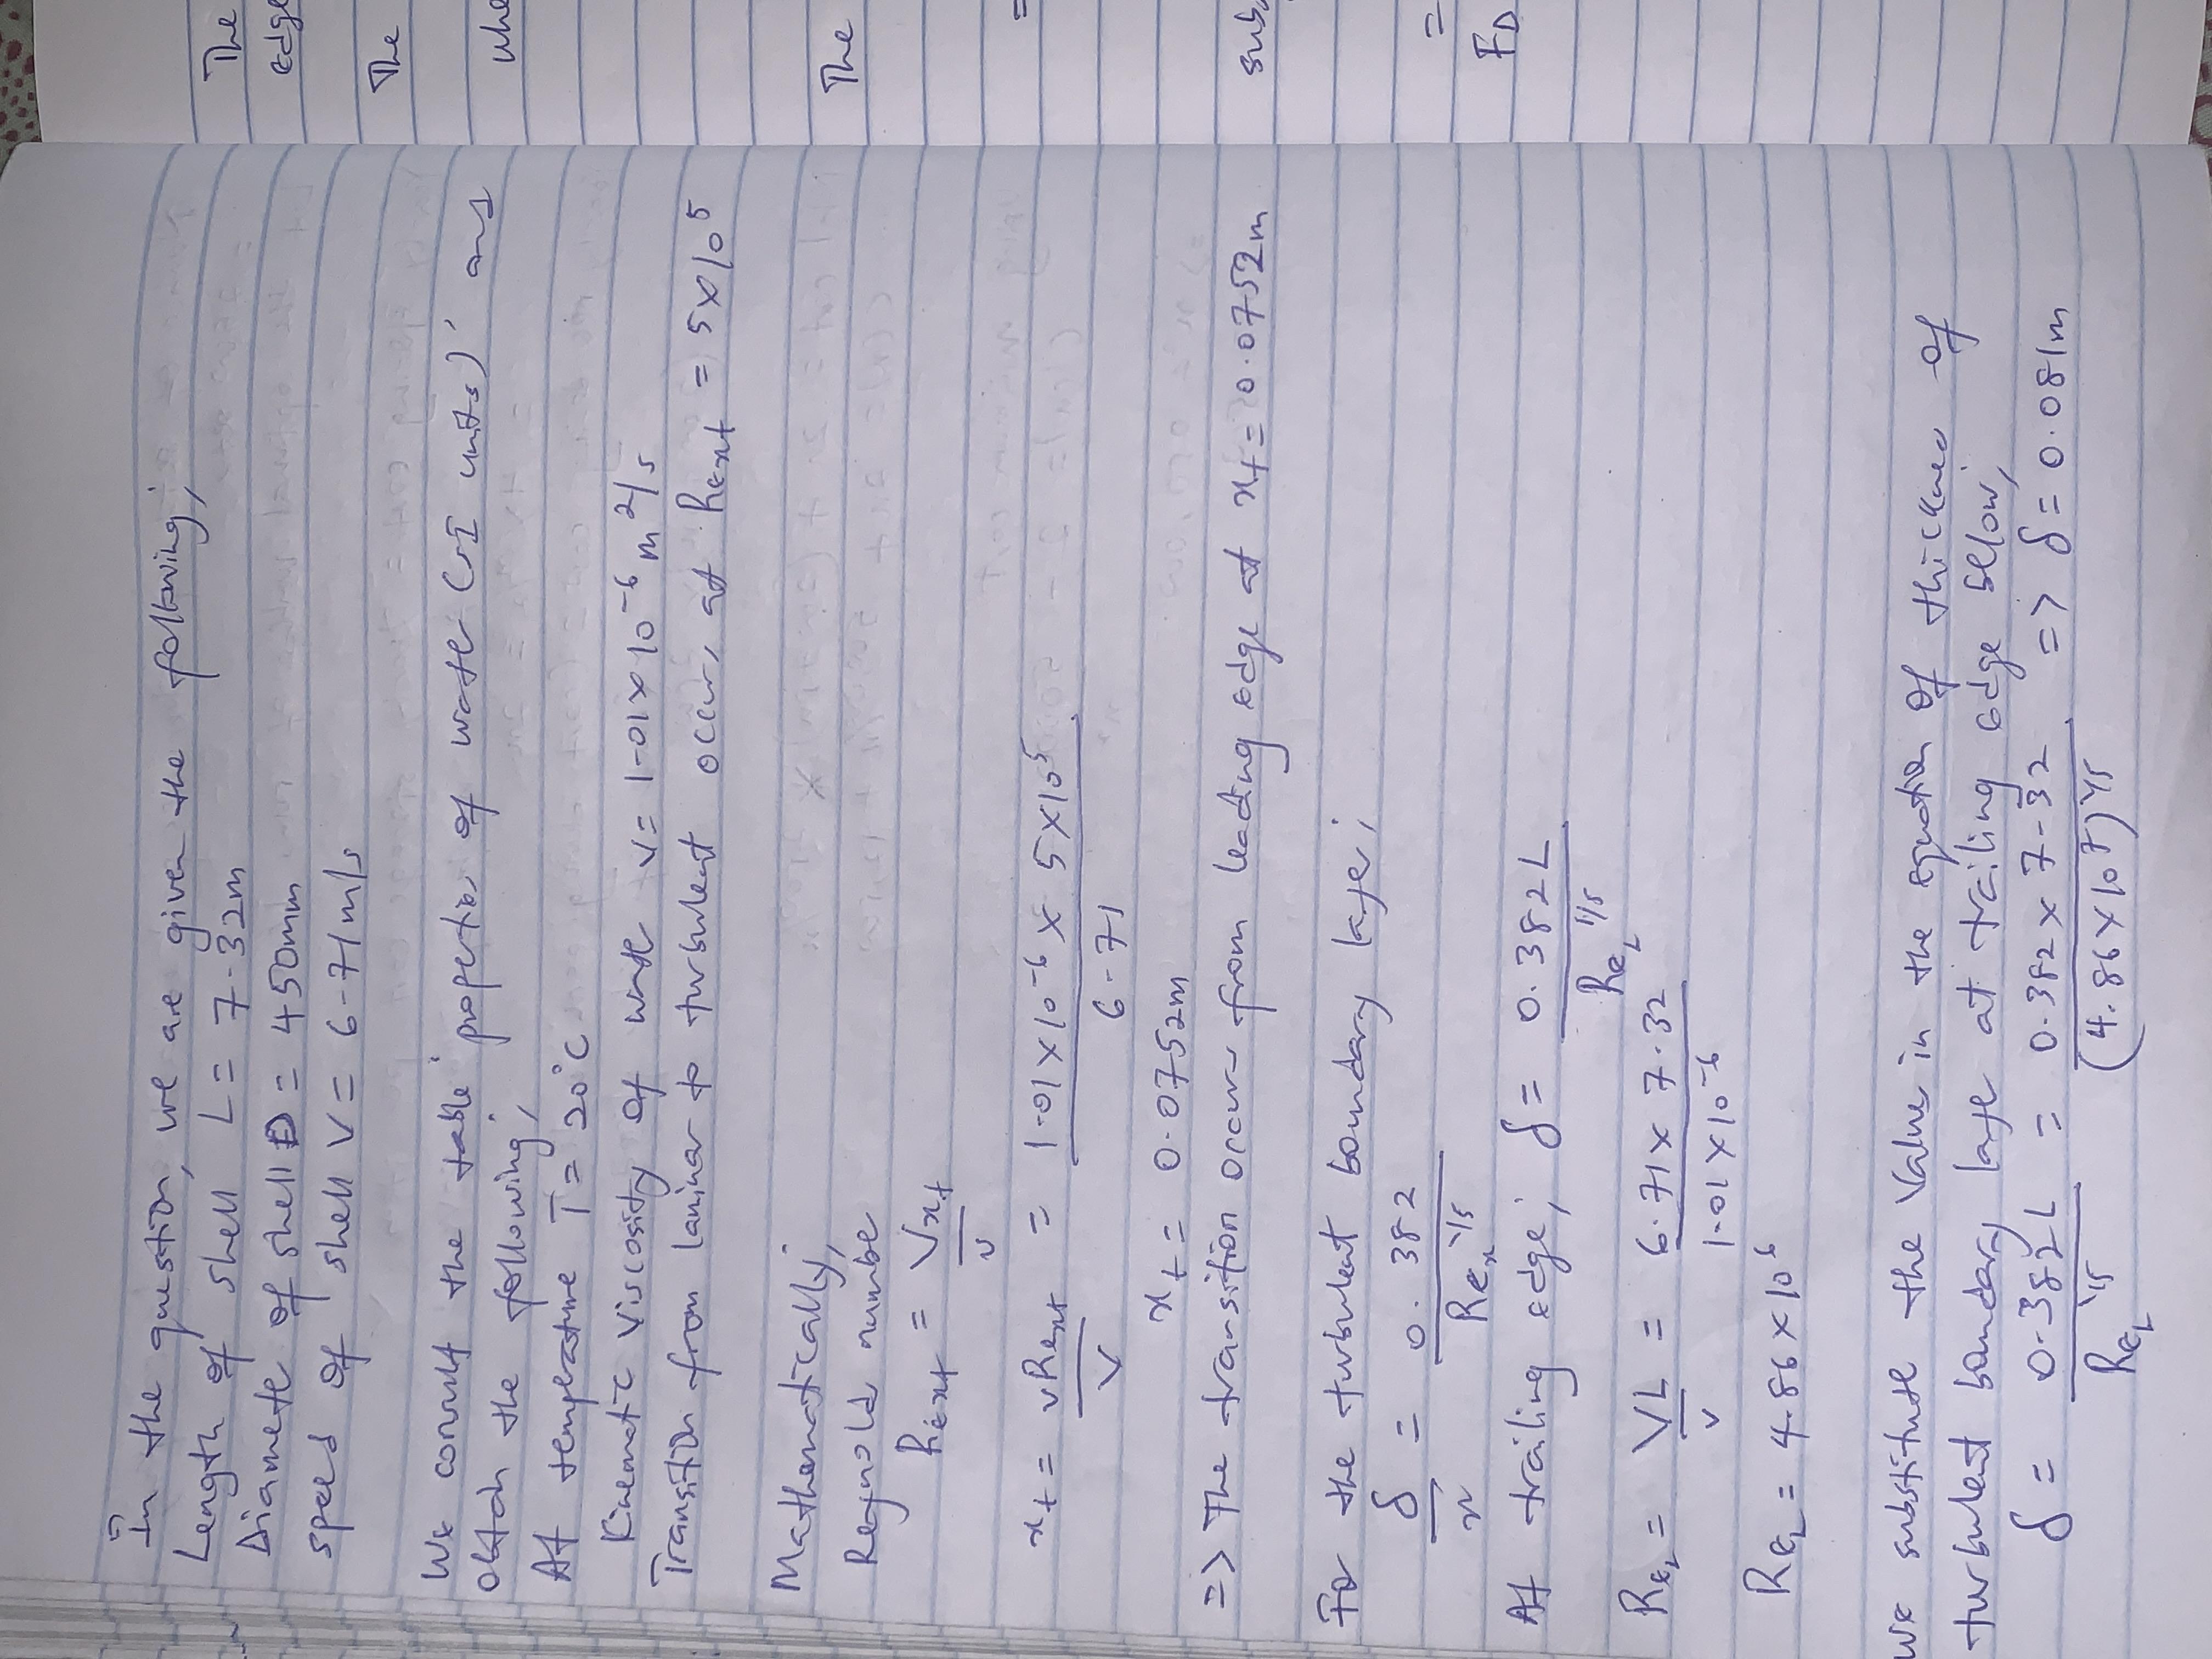 In the question, we are given the following,
Length of shell L = 7.32m
Diamete of shell D = 450mm
speed of shell V = 6.71m/s
We consult the table 'properties of wate (SI units)' and
obtain the following,
At temperature T = 20°C
Kinematic Viscosity of wate v = 1.01 x 10⁻⁶ m²/s
Transition from laminar to turbulent occurs at Rext = 5x10⁵
Mathematically,
Reynold numbe
Rext = Vxt/v
xt = vRext/V = 1.01 x 10⁻⁶ x 5x10⁵/6.71
xt = 0.0752m
=> The transition occurs from leading edge at xt = 0.0752m
For the turbulent boundary laye;
δ/x = 0.382/Rex^1/5
At trailing edge; δ = 0.382L/ReL^1/5
ReL = VL/v = 6.71 x 7.32/1.01 x 10⁻⁶
ReL = 4.86 x 10⁶
We substitute the Values in the equation of thicknes of
turbulent boundary laye at trailing edge below,
δ = 0.382L/ReL^1/5 = 0.382 x 7.32/(4.86 x 10⁷)^1/5 => δ = 0.081m
The
edge
The
whe
The
=
subs
=
FD